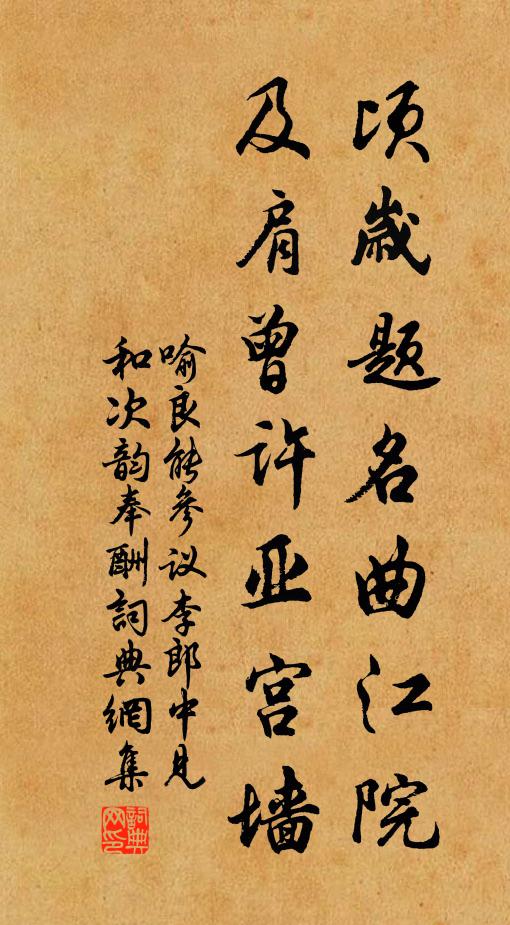 顷岁题名曲江院
及肩曾许亚宫墙
喻良能参议李郎中见
和次韵奉酬詞典網集
詞典
网印